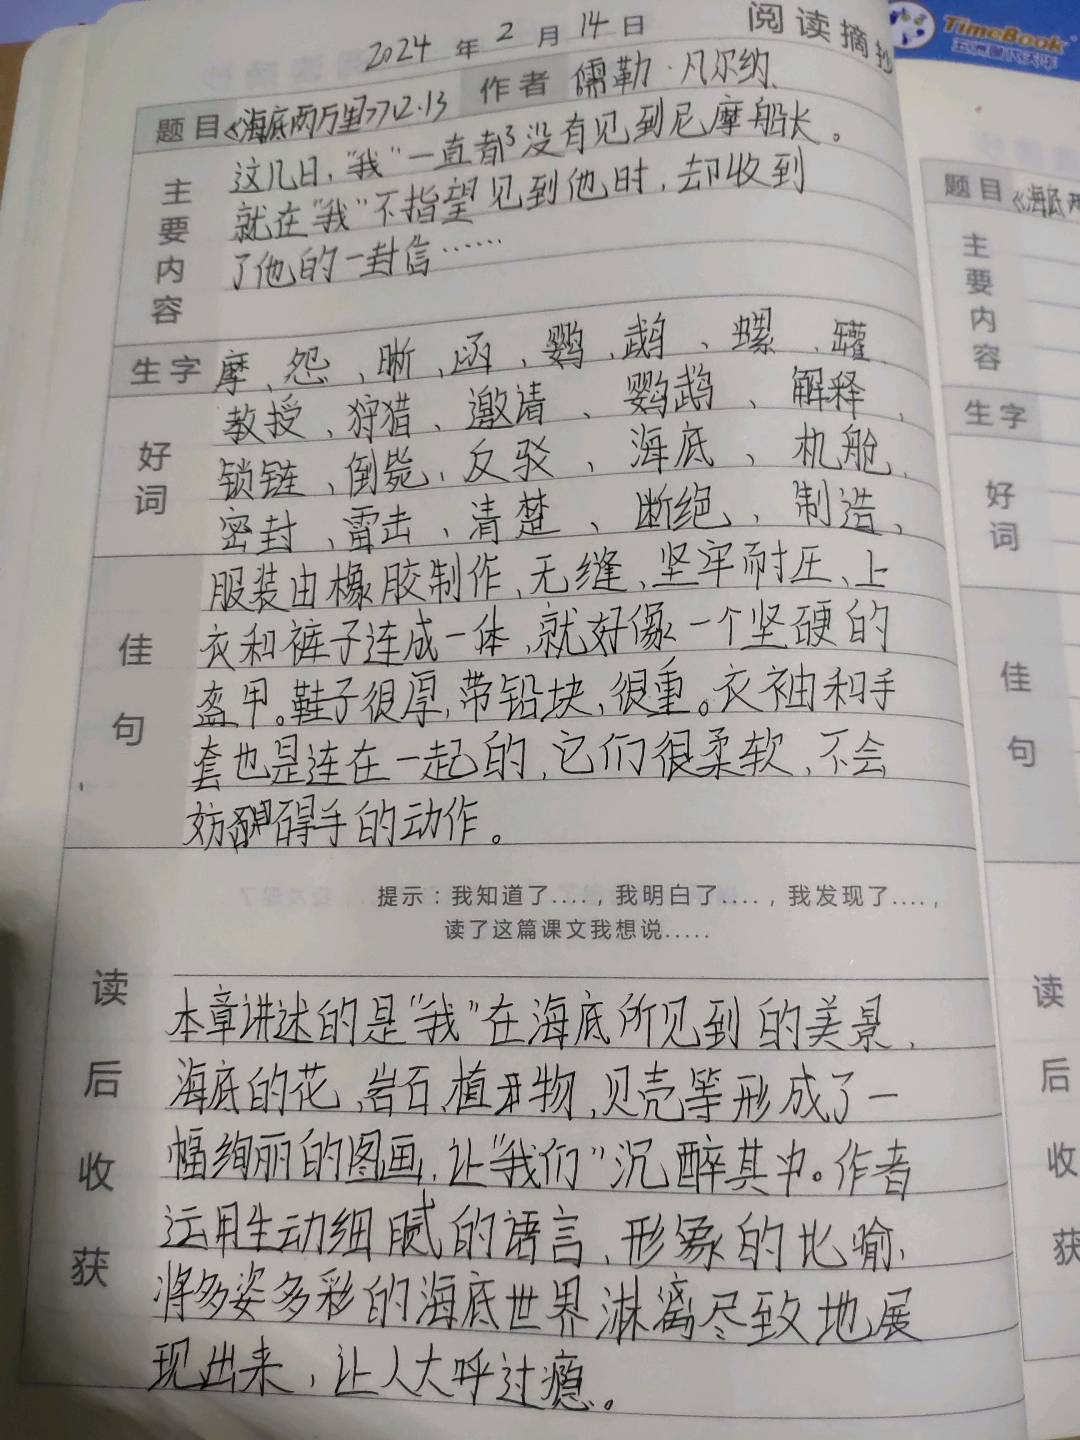 阅读摘抄
2024年2月14日
题目《海底两万里》712·13 作者 儒勒·凡尔纳
主要内容
这几日,“我”一直都没有见到尼摩船长。
就在“我”不指望见到他时,却收到
了他的一封信……
生字
摩、怨、晰、函、鹦、鹉、螺、罐
好词
教授、狩猎、邀请、鹦鹉、解释、
锁链、倒毙、反驳、海底、机舱、
密封、雷击、清楚、断绝、制造、
佳句
服装由橡胶制作、无缝、坚牢耐压、上
衣和裤子连成一体,就好像一个坚硬的
盔甲。鞋子很厚,带铅块,很重。衣袖和手
套也是连在一起的,它们很柔软,不会
妨碍手的动作。
提示:我知道了....,我明白了....,我发现了....,
读了这篇课文我想说.....
读后收获
本章讲述的是“我”在海底所见到的美景,
海底的花、岩石、植物、贝壳等形成了一
幅绚丽的图画,让“我们”沉醉其中。作者
运用生动细腻的语言、形象的比喻,
将多姿多彩的海底世界淋漓尽致地展
现出来,让人大呼过瘾。
TimeBook
题目《海底两
主要内容
生字
好词
佳句
读后收获